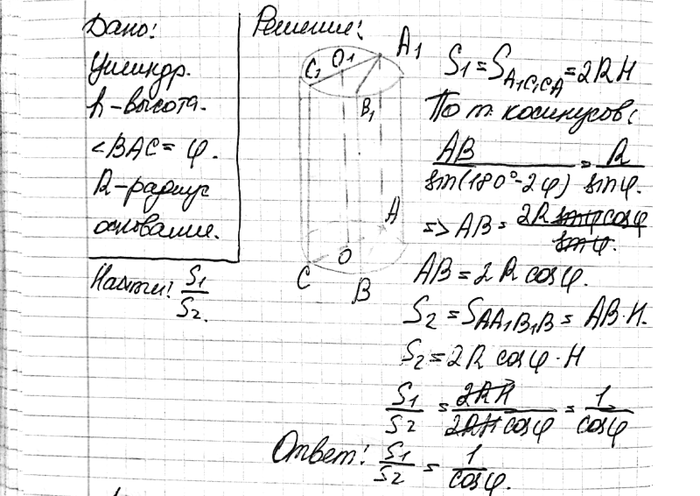 Дано:
Цилиндр.
h-высота.
<BAC = φ.
R-радиус
основание.
Найти: S1/S2.
Решение:
A1
O1
C1
B1
A
O
C
B
S1 = S A1C1CA = 2RH
По т. косинусов:
AB/sin(180°-2φ) = R/sinφ.
=> AB = 2R sinφ cosφ/sinφ.
AB = 2R cosφ.
S2 = S AA1B1B = AB·H.
S2 = 2R cosφ·H
S1/S2 = 2RH/2RH cosφ = 1/cosφ
Ответ: S1/S2 = 1/cosφ.